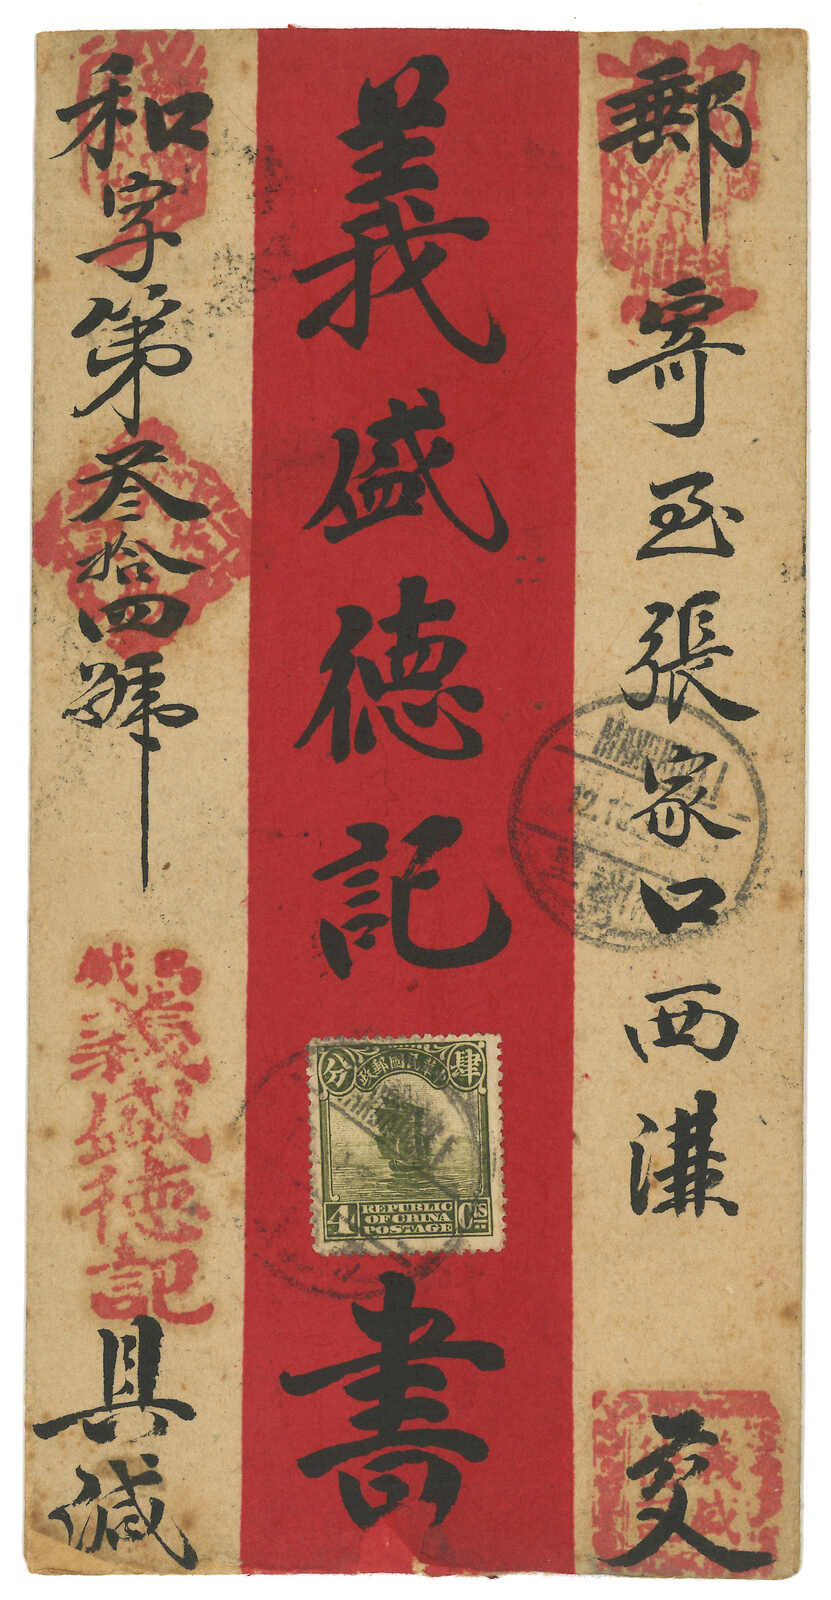 郵寄至張家口西溝交
義盛德記書
和字第叁拾四號
義盛德記
具緘
肆 中華民國郵政 分
4 REPUBLIC OF CHINA POSTAGE Cts